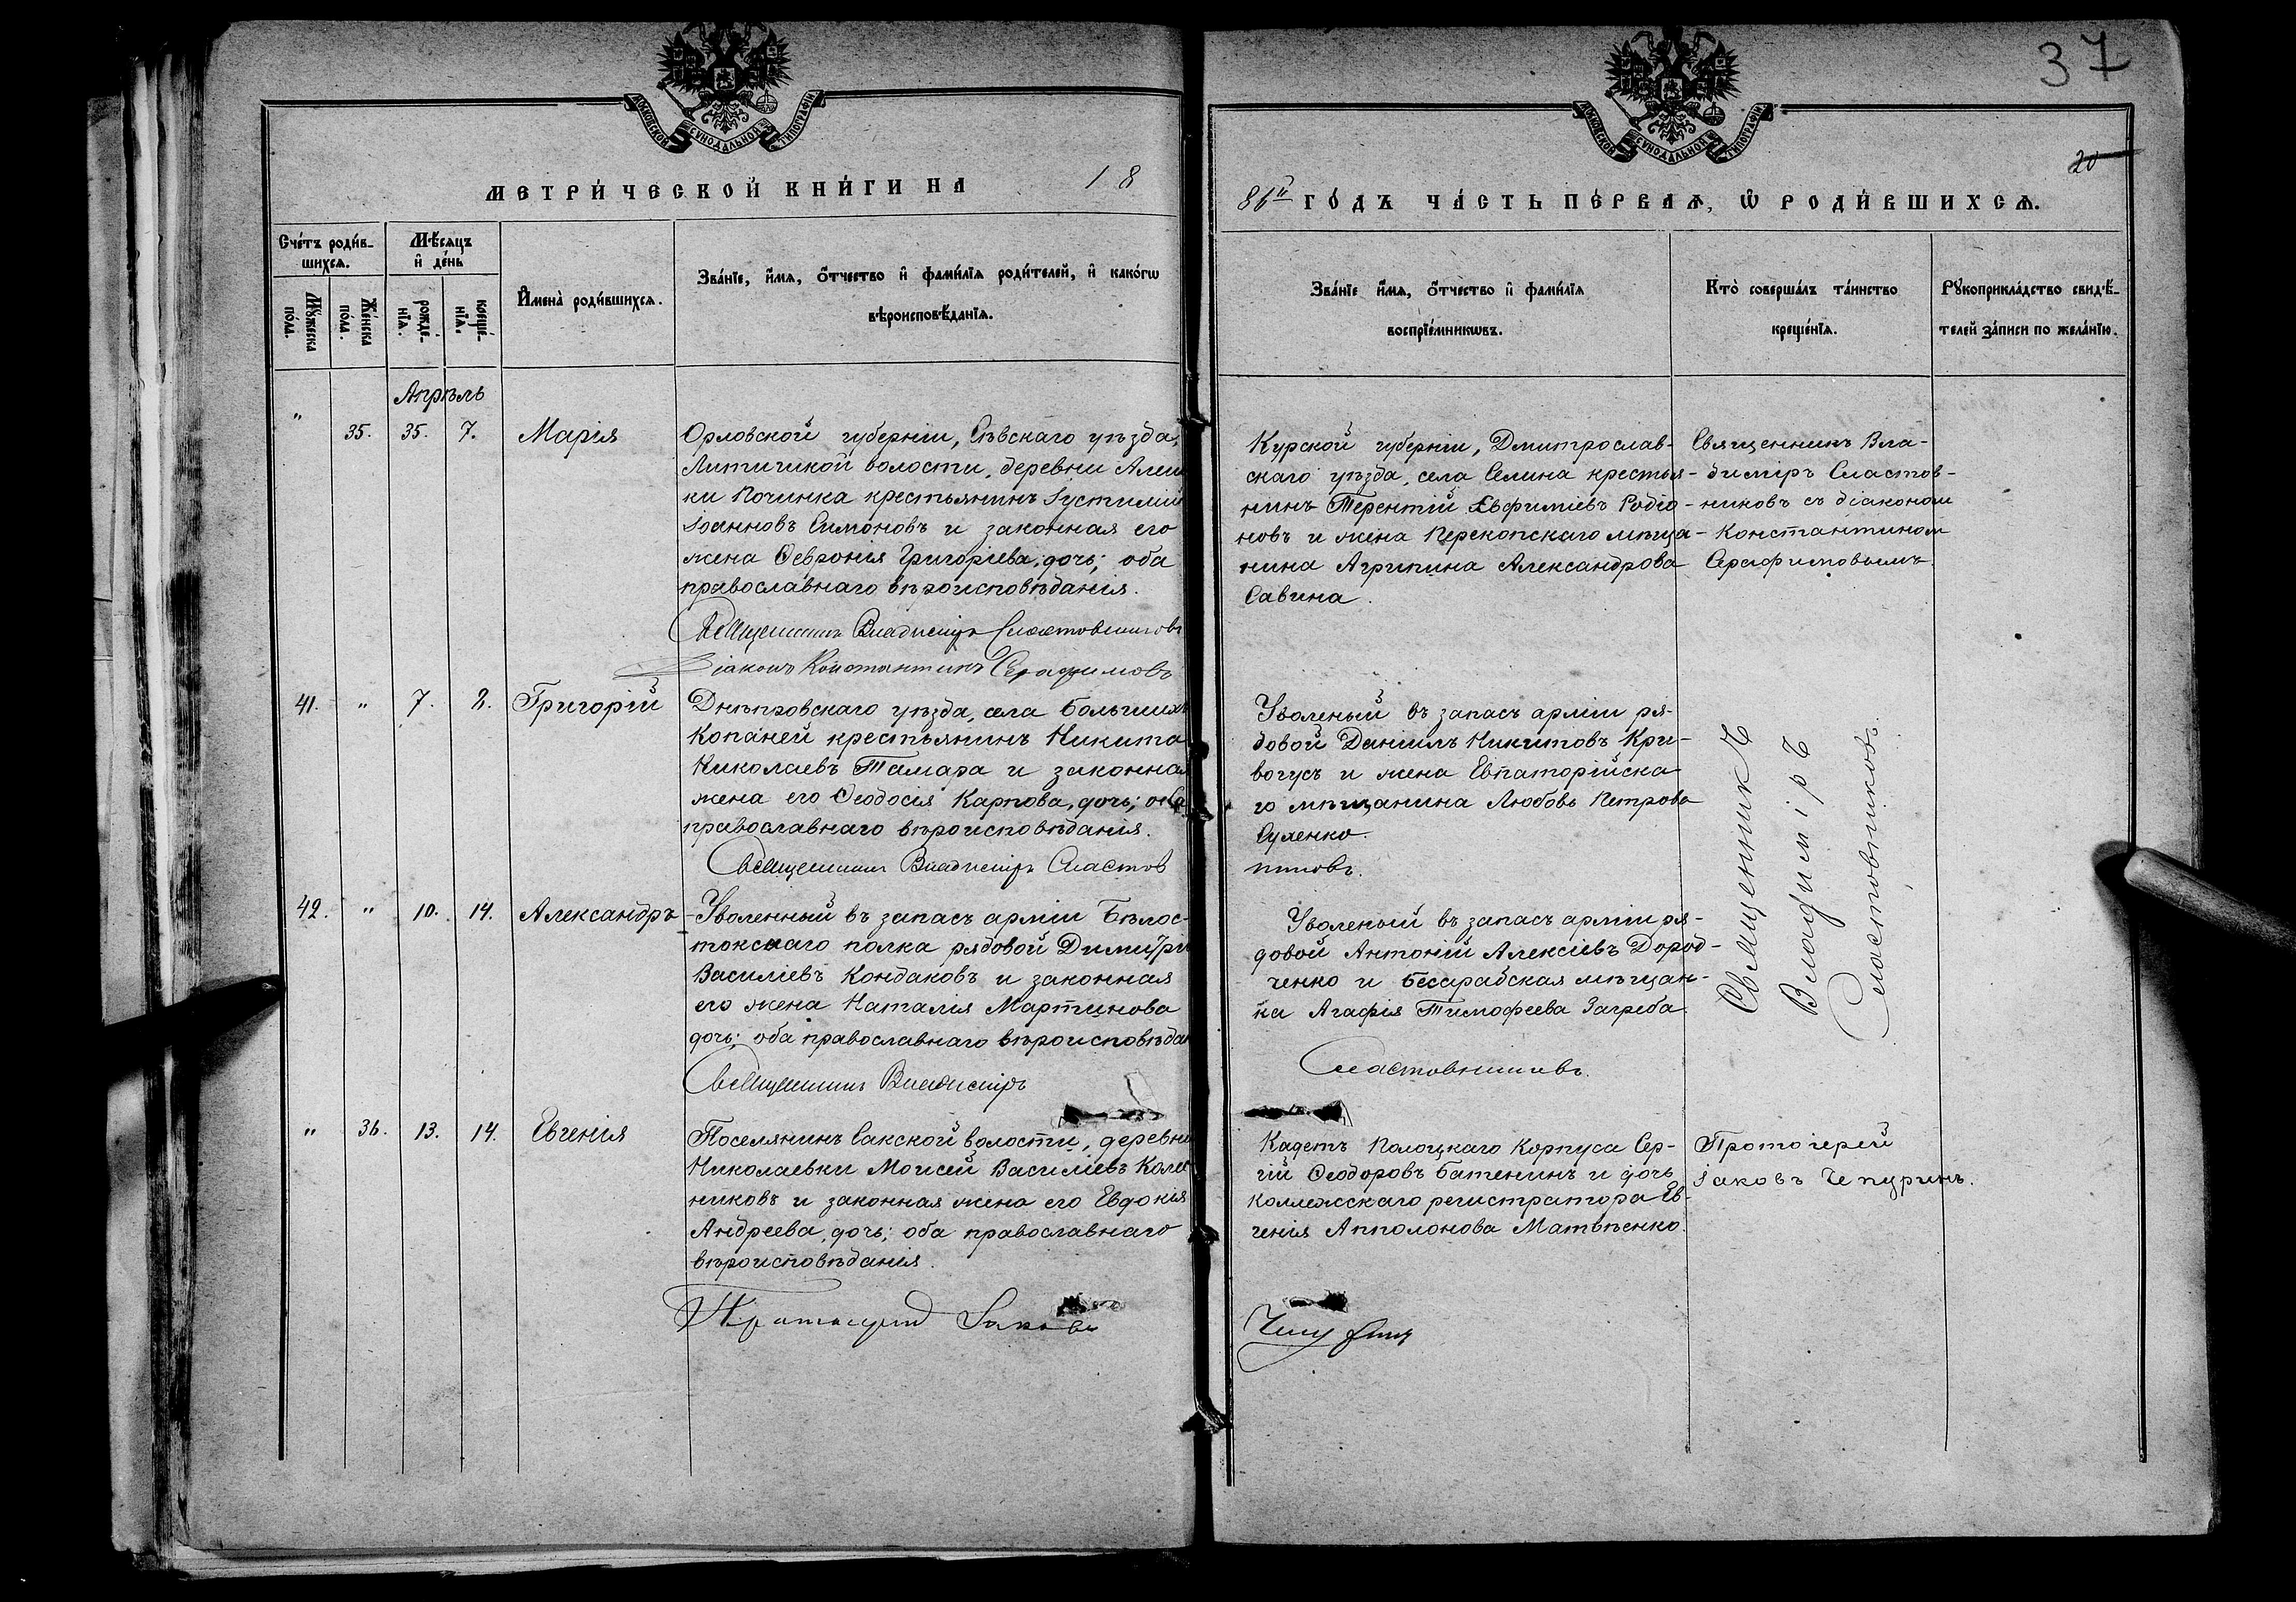 37
МОСКОВСКОЙ СУНОДАЛЬНОЙ ТИПОГРАФІИ
МОСКОВСКОЙ СУНОДАЛЬНОЙ ТИПОГРАФІИ
20
МЕТРИ́ЧЕСКОЙ КНИ́ГИ НА 18
86й ГО́ДЪ ЧА́СТЬ ПЕ́РВАѦ, Ѿ РОДИ́ВШИХСѦ.
Сче́тъ роди́в-
шихсѧ.
Мꙋ́жеска
по́ла.
Же́нска
по́ла.
Мѣ́сѧцъ
и҆ де́нь
рожде́-
нїѧ.
креще́-
нїѧ.
И҆мена̀ роди́вшихсѧ.
Зва́нїе, и҆́мѧ, ѻ҆́тчество и҆ фами́лїѧ роди́телей, и҆ како́гѡ
вѣроисповѣ́данїѧ.
Зва́нїе и҆́мѧ, ѻ҆́тчество и҆ фами́лїѧ
воспрїе́мникѡвъ.
Кто̀ соверша́лъ та́инство
креще́нїѧ.
Рꙋкоприкла́дство свидѣ́-
телей за́писи по жела́нїю.
Апрѣль
" 35. 35. 7. Марія
Орловской губерніи, Сѣвскаго уѣзда,
Литичкой волости, деревни Алеш
ки Починка крестьянинъ Іустимій
Іоанновъ Симоновъ и законная его
жена Ѳевронія Григоріева, дочь; оба
православнаго вѣроисповѣданія.
Священникъ Владиміръ Сластовниковъ
Діаконъ Константинъ Серафимовъ
Курской губерніи, Дмитрослав-
скаго уѣзда, села Селина крестья-
нинъ Терентій Евфиміевъ Родіо-
новъ и жена Перекопскаго мѣща-
нина Агрипина Александрова
Савина.
Священникъ Вла-
диміръ Сластов-
никовъ съ діакономъ
Константиномъ
Серафимовымъ.
41. " 7. 8. Григорій
Днѣпровскаго уѣзда, села Большихъ
Копаней крестьянинъ Никита
Николаевъ Тамара и законная
жена его Ѳеодосія Карпова, дочь; оба
православнаго вѣроисповѣданія.
Священникъ Владиміръ Сластов
Уволеный въ запасъ арміи ря-
довой Даніилъ Никитовъ Кри-
вогузъ и жена Евпаторійска-
го мѣщанина Любовь Петрова
Суленко.
никовъ.
Священникъ
Владиміръ
Сластовниковъ.
42. " 10. 14. Александръ
Уволенный въ запасъ арміи Бѣлос-
токскаго полка рядовой Димитрій
Василіевъ Кондаковъ и законная
его жена Наталія Мартинова
дочь; оба православнаго вѣроисповѣдан
Священникъ Владиміръ
Уволеный въ запасъ арміи ря-
довой Антоній Алексіевъ Дород-
ченко и Бесарабская мѣщан-
ка Агафія Тимофеева Загреба.
Сластовниковъ.
" 36. 13. 14. Евгенія
Поселянинъ Сакской волости, деревни
Николаевки Моисей Василіевъ Колес
никовъ и законная жена его Евдокія
Андреева, дочь; оба православнаго
вѣроисповѣданія.
Протоіерей Іаковъ
Кадетъ Полоцкаго Корпуса Сер-
гій Ѳеодоровъ Батенинъ и дочь
Коллежскаго регистратора Ев-
генія Апполонова Матвѣенко.
Чепуринъ
Протоіерей
Іаковъ Чепуринъ.